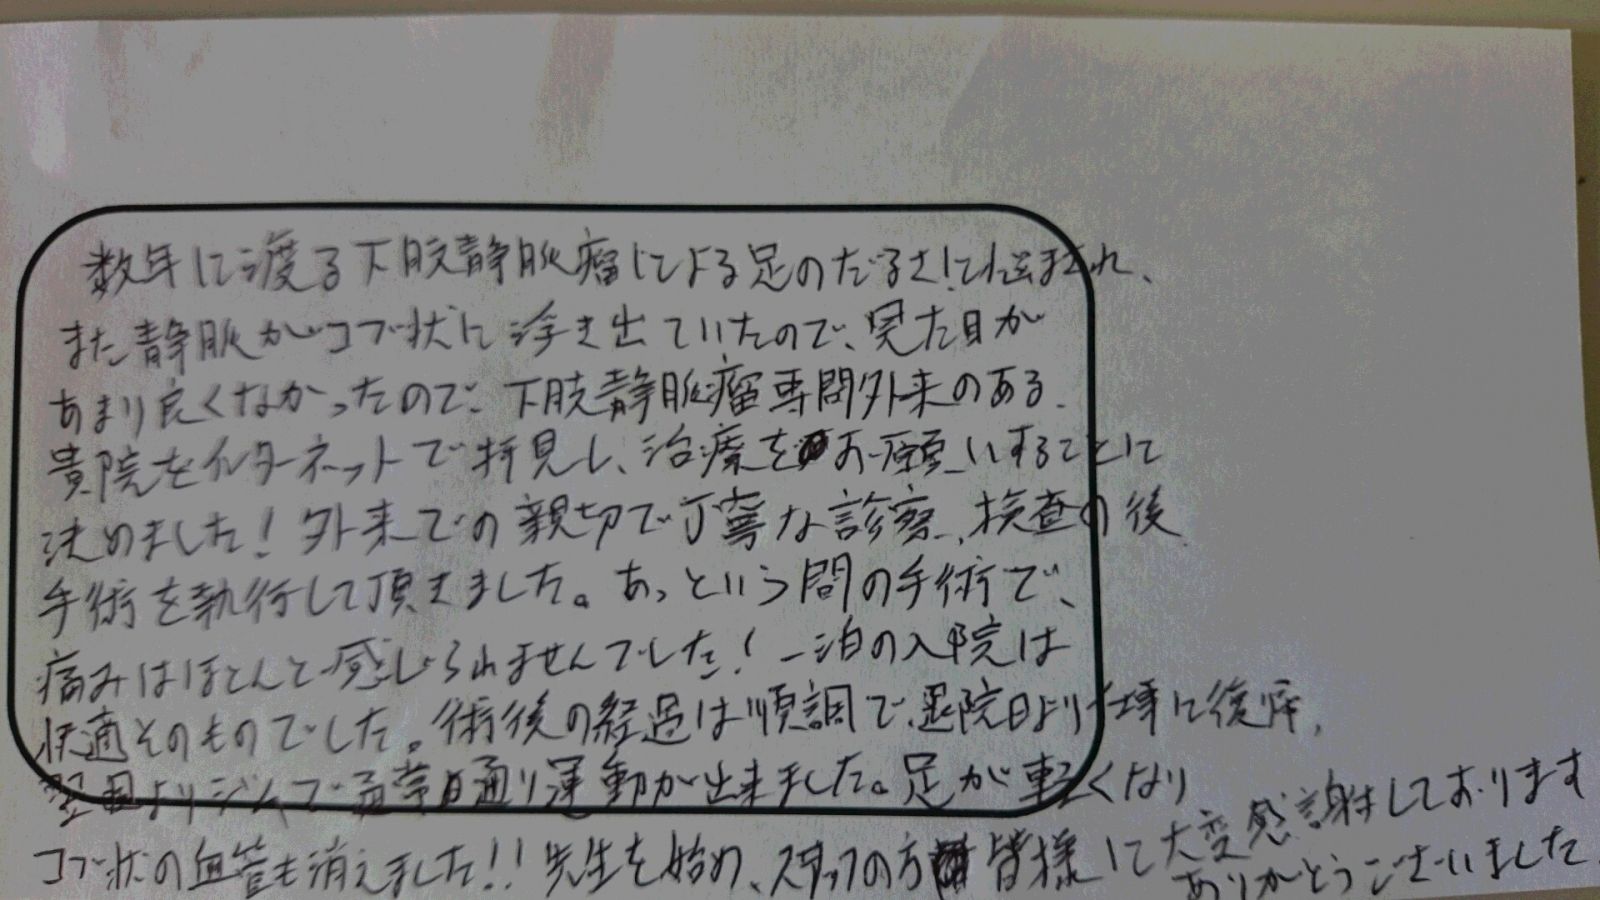 数年に渡る下肢静脈瘤による足のだるさに悩まされ、
また静脈がコブ状に浮き出ていたので、見た目が
あまり良くなかったので、下肢静脈瘤専門外来のある
貴院をインターネットで拝見し、治療をお願いすることに
決めました！外来での親切で丁寧な診察、検査の後
手術を執行して頂きました。あっという間の手術で、
痛みはほとんど感じられませんでした！一泊の入院は
快適そのものでした。術後の経過は順調で、退院日より仕事に復帰、
翌日よりジムで通常通り運動が出来ました。足が軽くなり
コブ状の血管も消えました!!先生を始め、スタッフの方皆様に大変感謝しております
ありがとうございました